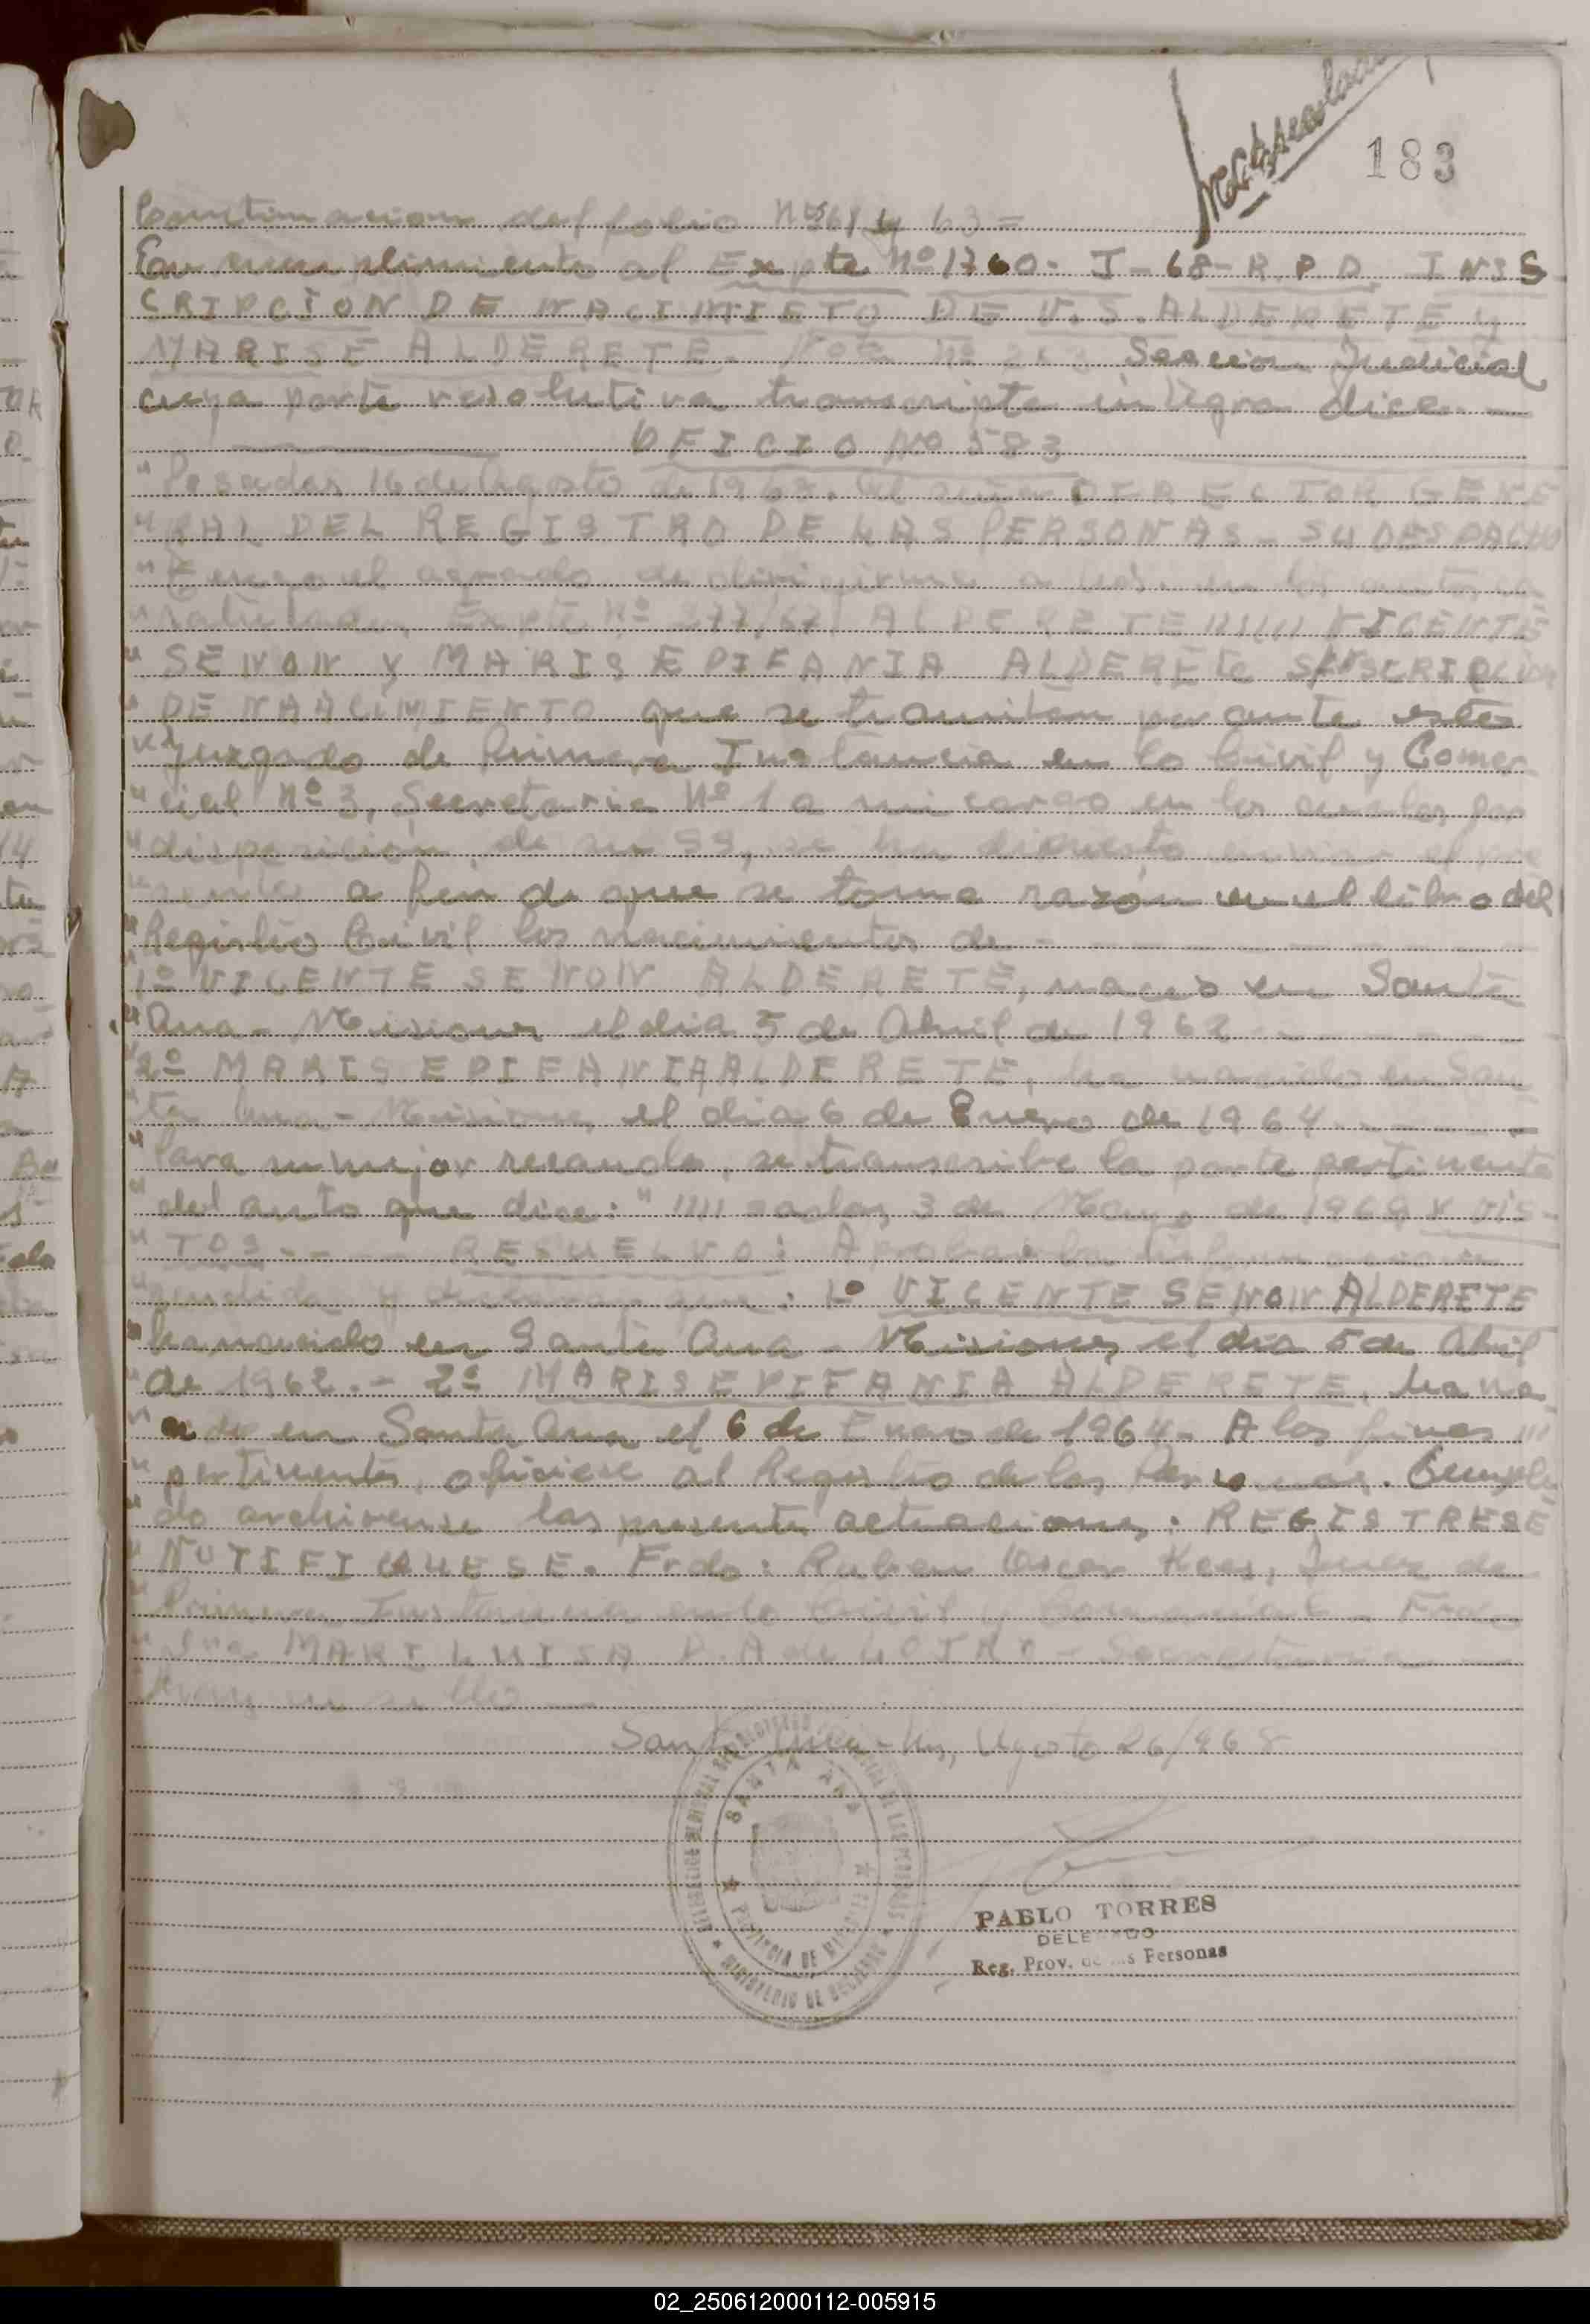 183
Continuacion del folio Nos 61 y 63 =
En cumplimiento al Expte Nº 1760- I - 68 - R.P.D. INSS
CRIPCION DE NACIMIETO DE V.S. ALDERETE y
MARISE ALDERETE. Nota Nº Seccion Judicial
cuya parte resolutiva transcripta integra dice
OFICIO Nº 583
" Posadas 16 de Agosto de 1968. Al señor DIRECTOR GENE
" RAL DEL REGISTRO DE LAS PERSONAS - SU DESPACHO
" Tengo el agrado de dirigirme a Ud. en los autos ca
" ratulados, Expte Nº 277/67, ALDERETE VICENTE
" SENON y MARIS EPIFANIA ALDERETE S/INSCRIPCION
" DE NAACIMIENTO que se tramitan por ante este
" Juzgado de Primera Instancia en lo Civil y Comer
" cial Nº 3, Secretaria Nº 1 a mi cargo en los cuales por
" disposicion de se ha dispuesto enviar el pre
" sente a fin de que se tome razón en el libro del
" Registro Civil los nacimientos de -
" 1º VICENTE SENON ALDERETE, nacio en Santa
" Ana - Misiones el dia 5 de Abril de 1962
" 2º MARIS EPIFANIA ALDERETE, ha nacido en San
" ta Ana - Misiones, el dia 6 de Enero de 1964
" Para su mejor recaudo, se transcribe la parte pertinente
" del auto que dice: " //// sadas, 3 de de 1968 Y VIS-
" TOS - - - - RESUELVO: Aprobar la informacion
" rendida y declarar que: 1º VICENTE SENON ALDERETE
" ha nacido en Santa Ana - Misiones, el dia 5 de Abril
" de 1962. - 2º MARIS EPIFANIA ALDERETE, ha na
" cido en Santa Ana el 6 de Enero de 1964 - A los fines ///
" pertinentes, oficiese al Registro de las Personas. Cumpli
" do archivense las presentes actuaciones. REGISTRESE
" NOTIFIQUESE. Frdo: Ruben Oscar Kees, Juez de
" Primera Instancia en lo Civil y Comercial - Frdo
" MARI LUISA P. A de - Secretaria
Hay un sello
Santa Ana - Mnes, Agosto 26/968
SANTA ANA
PROVINCIA DE MISIONES
MINISTERIO DE GOBIERNO
PABLO TORRES
DELEGADO
Reg. Prov. de las Personas
02_250612000112-005915